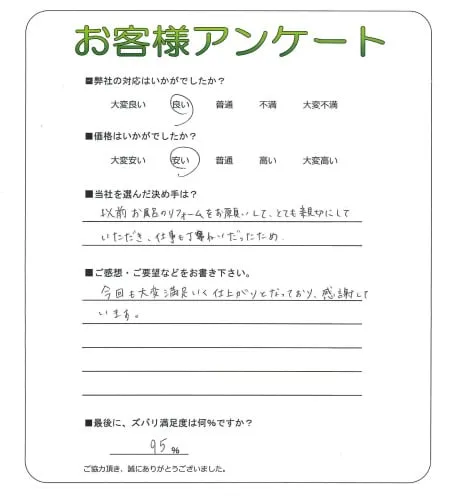 お客様アンケート
■弊社の対応はいかがでしたか？
大変良い 良い 普通 不満 大変不満
■価格はいかがでしたか？
大変安い 安い 普通 高い 大変高い
■当社を選んだ決め手は？
以前お風呂のリフォームをお願いして、とても親切にして
いただき、仕事も丁寧だったため.
■ご感想・ご要望などをお書き下さい。
今回も大変満足いく仕上がりとなっており、感謝して
います。
■最後に、ズバリ満足度は何％ですか？
95％
ご協力頂き、誠にありがとうございました。